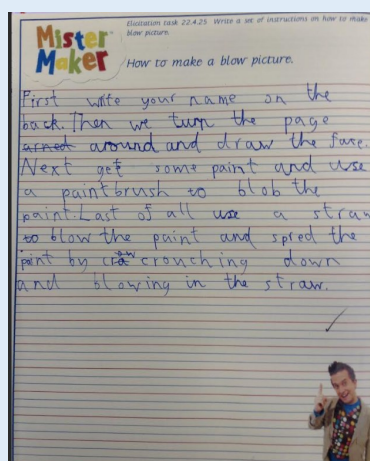 Mister
Maker
Elicitation task 22.4.25 Write a set of instructions on how to make
blow picture.
How to make a blow picture.
First write your name on the
back. Then we turn the page
arned around and draw the fase.
Next get some paint and use
a paintbrush to blob the
paint. Last of all use a straw
to blow the paint and spred the
paint by crouching down
and blowing in the straw.